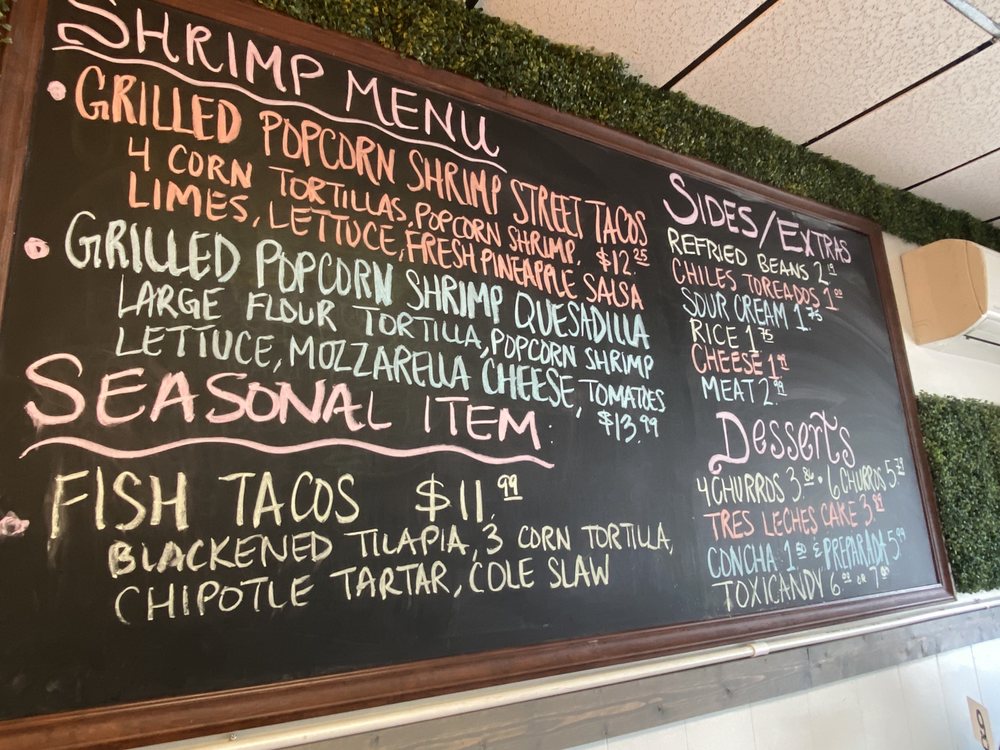 SHRIMP MENU
GRILLED POPCORN SHRIMP STREET TACOS
4 CORN TORTILLAS, POPCORN SHRIMP, $12.25
LIMES, LETTUCE, FRESH PINEAPPLE SALSA
GRILLED POPCORN SHRIMP QUESADILLA
LARGE FLOUR TORTILLA, POPCORN SHRIMP
LETTUCE, MOZZARELLA CHEESE, TOMATOES
$13.99
SEASONAL ITEM:
FISH TACOS $11.99
BLACKENED TILAPIA, 3 CORN TORTILLA,
CHIPOTLE TARTAR, COLE SLAW
SIDES/EXTRAS
REFRIED BEANS 2.19
CHILES TOREADOS 1.00
SOUR CREAM 1.75
RICE 1.75
CHEESE
MEAT 2.99
Desserts
4 CHURROS 3.86 • 6 CHURROS
TRES LECHES CAKE 3.99
CONCHA 1.50 & PREPARADA 5.99
TOXICANDY 6.00 OR